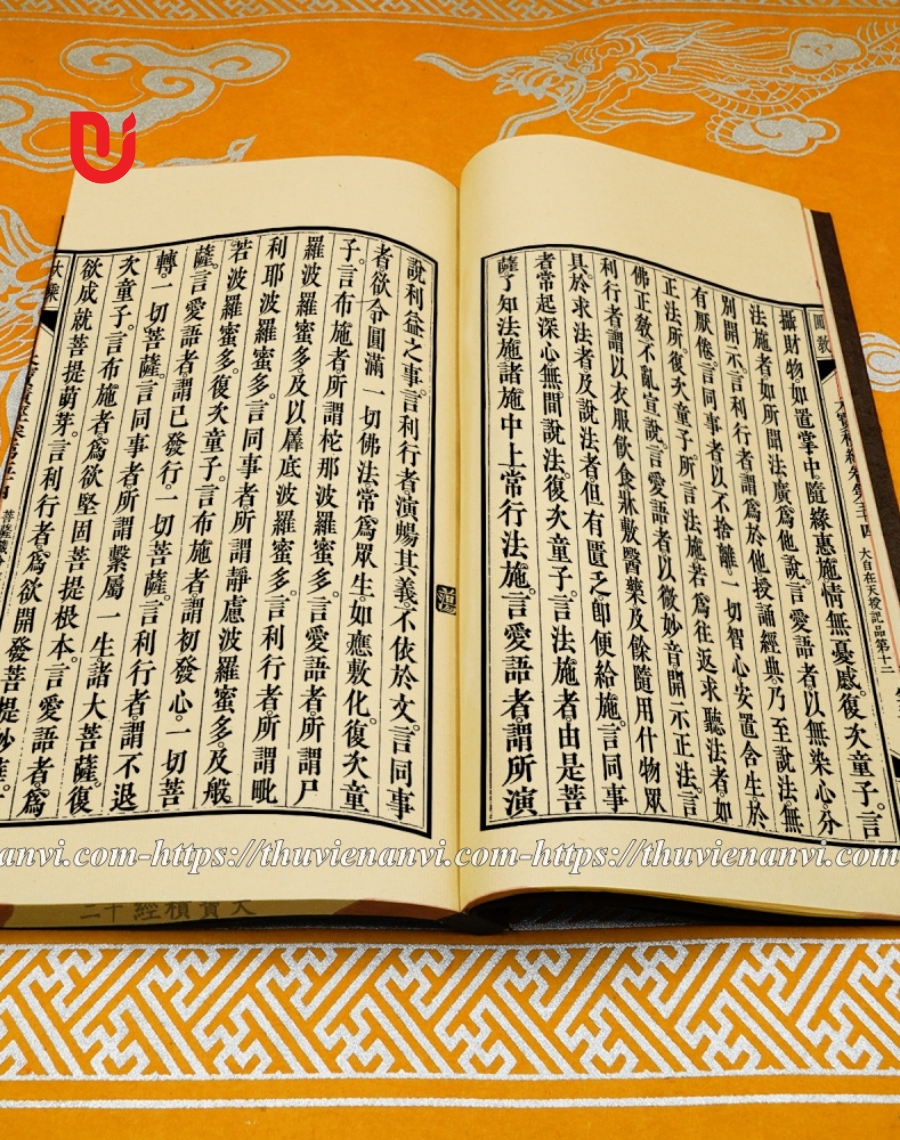 圓教
大自在天授記品第十二
攝財物。如置掌中。隨緣惠施。情無憂慼。復次童子。言
法施者。如所聞法。廣爲他說。言愛語者。以無染心。分
別開示。言利行者。謂爲於他授誦經典。乃至說法。無
有厭倦。言同事者。以不捨離一切智心。安置含生於
正法所。復次童子。所言法施。若爲往返求聽法者。如
佛正教。不亂宣說。言愛語者。以微妙音開示正法。言
利行者。謂以衣服飲食牀敷醫藥及餘隨用什物。眾
具。於求法者及說法者。但有匱乏。即便給施。言同事
者。常起深心。無間說法。復次童子。言法施者。由是菩
薩了知法施諸施中上。常行法施。言愛語者。謂所演
說利益之事。言利行者。演暢其義。不依於文。言同事
者。欲令圓滿一切佛法。常爲眾生。如應敷化。復次童
子。言布施者。所謂柁那波羅蜜多。言愛語者。所謂尸
羅波羅蜜多。及以羼底波羅蜜多。言利行者。所謂毗
利耶波羅蜜多。言同事者。所謂靜慮波羅蜜多。及般
若波羅蜜多。復次童子。言布施者。謂初發心一切菩
薩。言愛語者。謂已發行一切菩薩。言利行者。謂不退
轉一切菩薩。言同事者。所謂繫屬一生諸大菩薩。復
次童子。言布施者。爲欲堅固菩提根本。言愛語者。爲
欲成就菩提萌芽。言利行者。爲欲開發菩提妙
大乘
大寶積經 十二
anvi.com-https://thuvienanvi.com-https://thuvienanvi.com-https://thuv